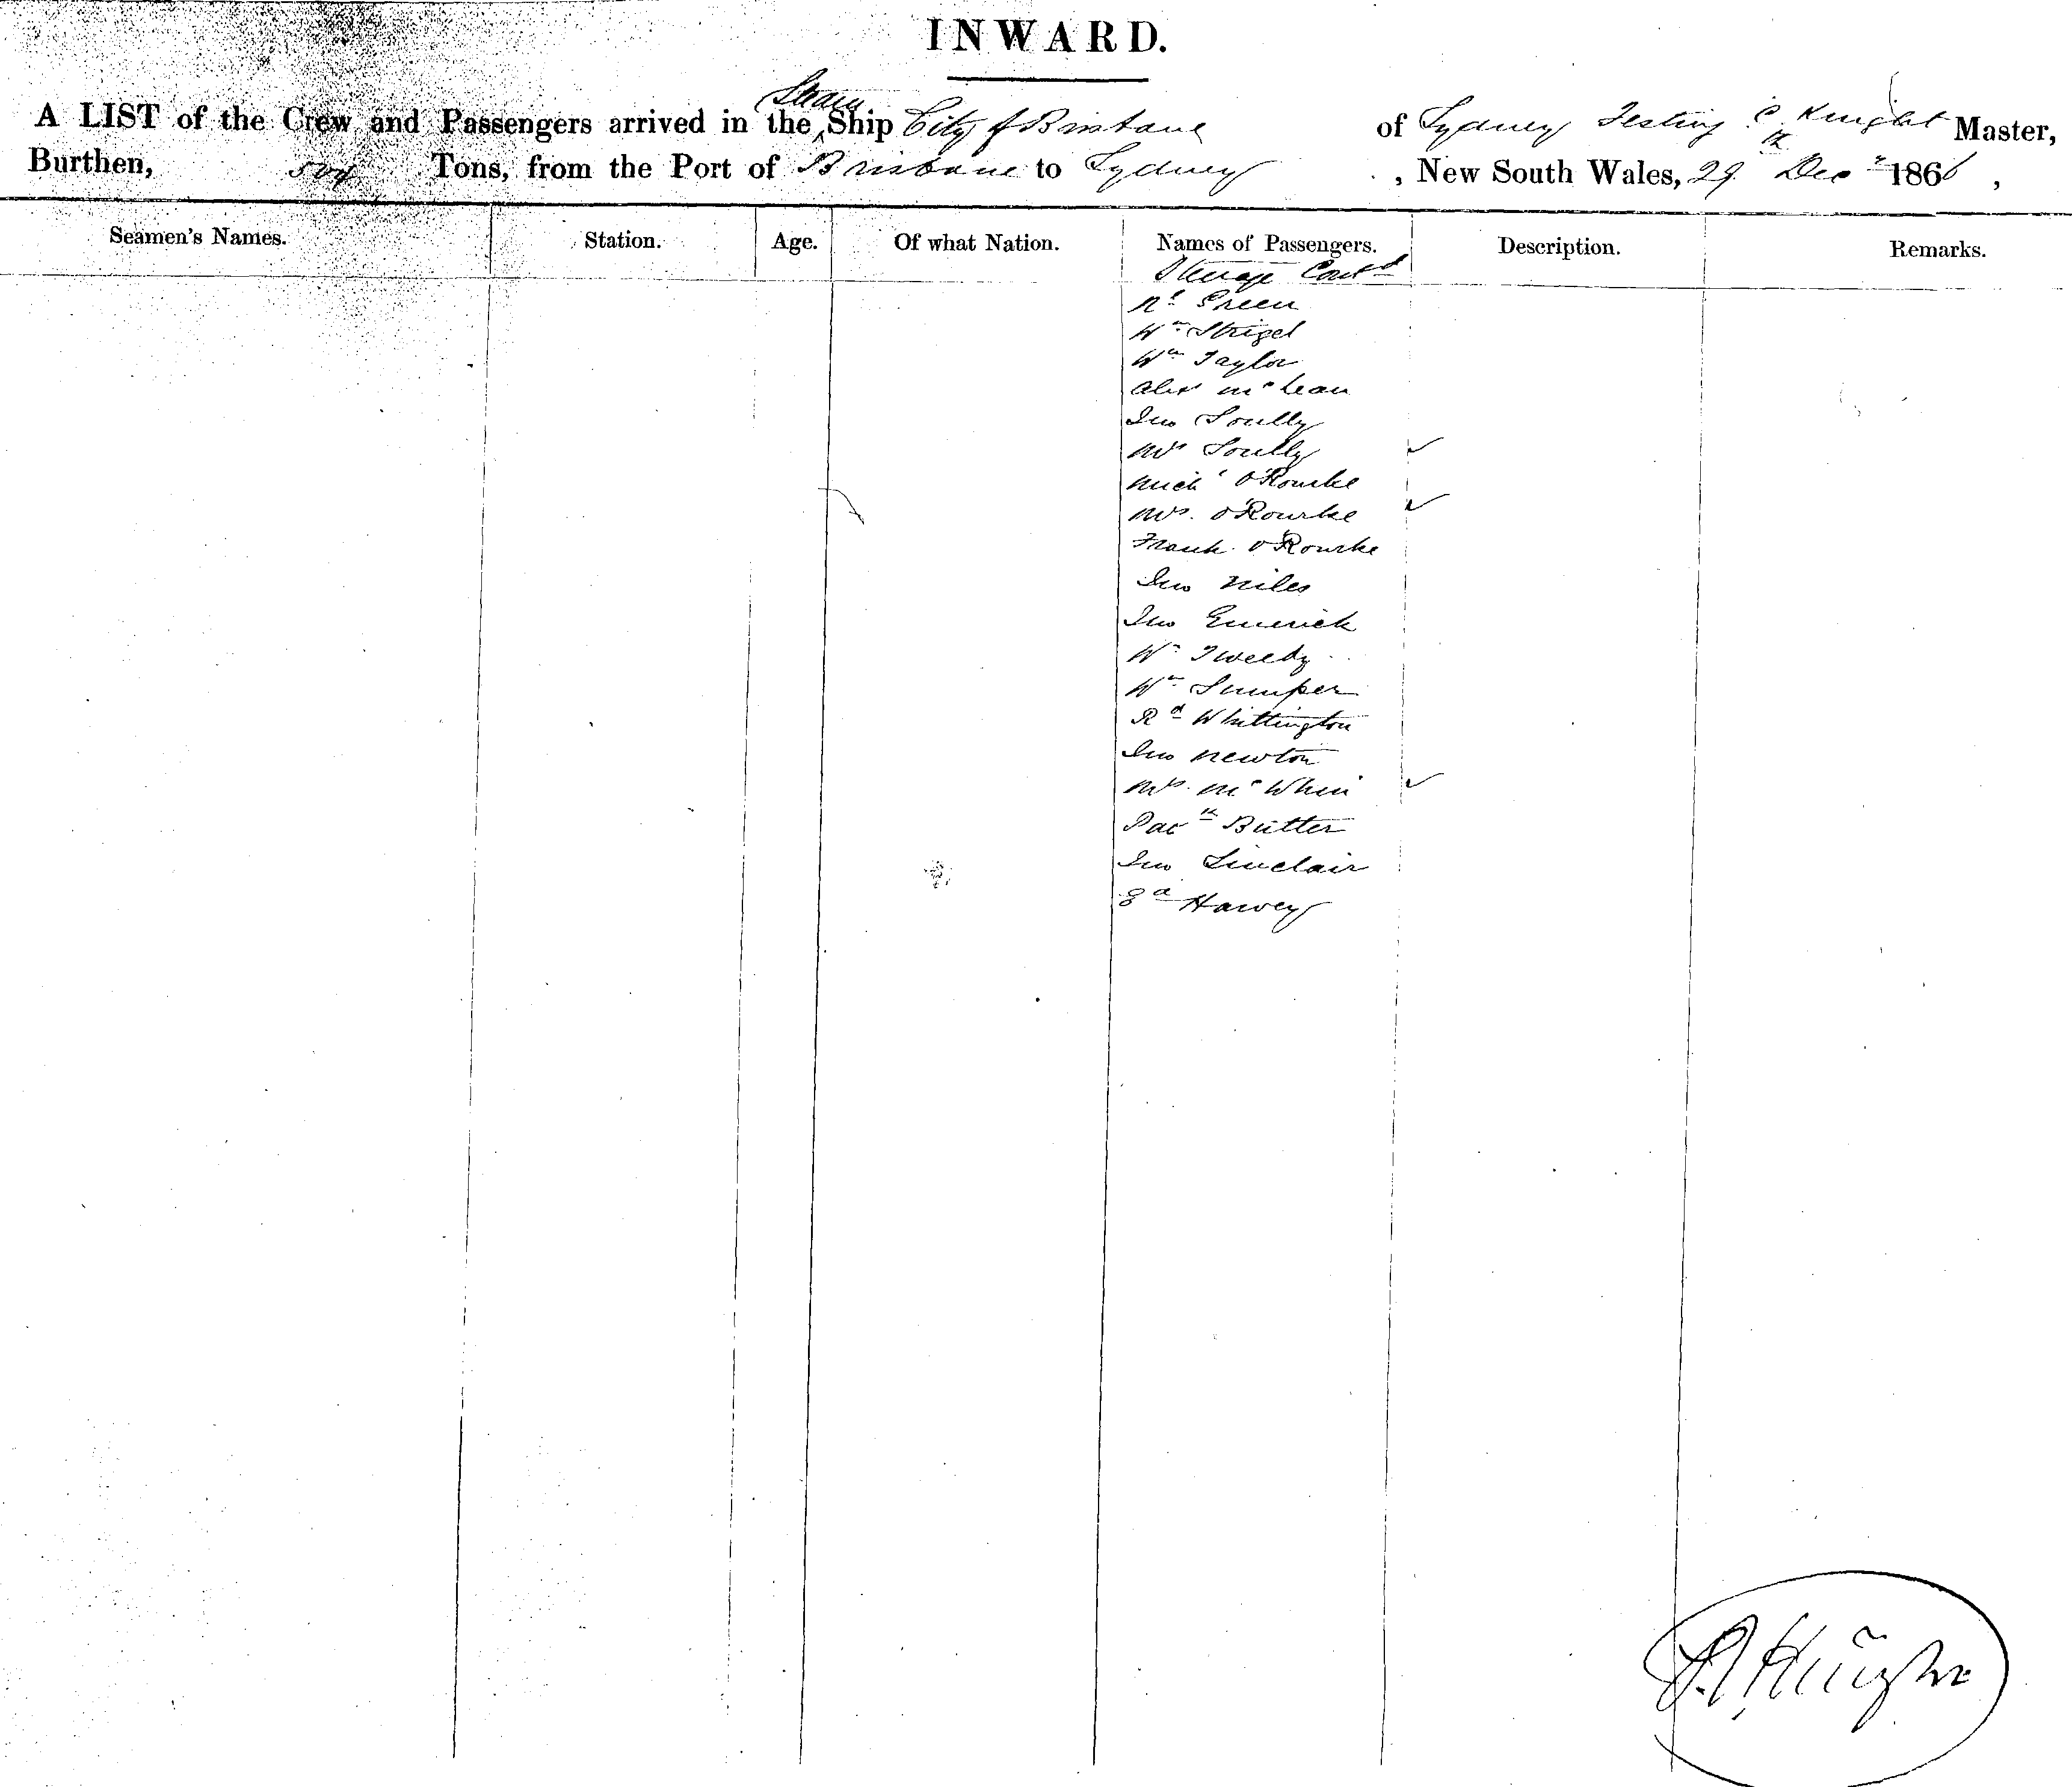 INWARD.
A LIST of the Crew and Passengers arrived in the Steam Ship City of Brisbane of Sydney C. Knight Master,
Burthen, 504 Tons, from the Port of Brisbane to Sydney, New South Wales, 29th Decr 1866,
Seamen's Names. Station. Age. Of what Nation. Names of Passengers. Description. Remarks.
Steerage Contd
Rt Green
Wm Strigel
Wm Taylor
Alex McLean
Jno Scully
Mrs Scully
Mich O'Rourke
Mrs. O'Rourke
Frank. O'Rourke
Jno Niles
Jno Emerick
Wm Tweedy
Wm Sumper
Rd Whittington
Jno Newton
Mrs. Mc
Butter
Jno Sinclair
Harvey
Knight